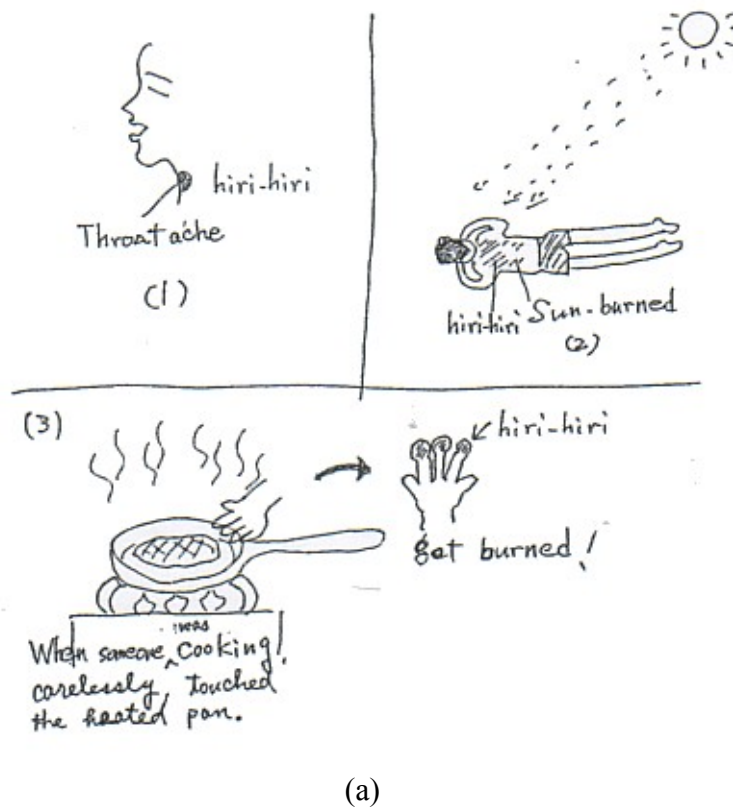 hiri-hiri
Throat ache
(1)
hiri-hiri Sun-burned
(2)
(3)
hiri-hiri
get burned!
was
When someone ^ cooking!
carelessly touched
the heated pan.
(a)